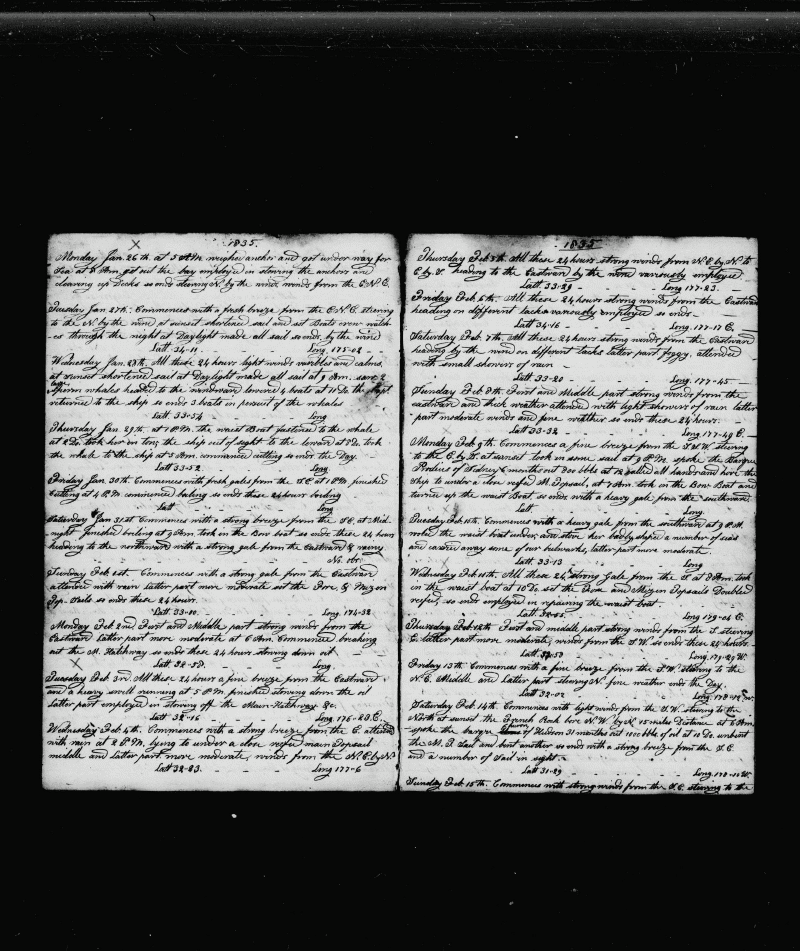 1835.
Monday Jan. 26th. at 5 A.M. weighed anchor and got under way for
Sea at 8 A.m. got out the bay employed in stowing the anchors and
cleaving up Decks so ends steering N. by the wind winds from the E.N.E.
Tuesday Jan. 27th. Commences with a fresh breeze from the E.N.E. steering
to the N. by the wind at sunset shortened sail and set Boats crew watch
-es through the night at Daylight made all sail so ends by the wind
Latt 34-11 Long 175-02
Wednesday Jan. 28th. All these 24 hours light winds varibles and calms,
at sunset shortened sail at Daylight made all sail at 9 A.m. saw 2
large
Sperm whales headed to the windward lowered 4 boats at 11 Do. the ship
returned to the ship so ends 3 boats in persuit of the whales
Latt 33-54 Long
Thursday Jan 29th. at 1 P.M. the waist Boat fastened to the whale
at 2 Do. took her in tow, the ship out of sight to the leward at Do. took
the whale to the ship at 5 A.m. commenced cutting so ends the Day.
Latt 33-52 Long
Friday Jan. 30th. Commences with fresh gales from the S.E. at 1 P.M. finished
Cutting at 4 P.M. commenced boiling so ends these 24 hours boiling
Latt Long
Saturday Jan 31st Commences with a strong breeze from the S.E. at Mid-
-night finished boiling at 9 A.m. took in the Bow boat so ends these 24 hours
heading to the northward with a strong gale from the Eastward & rainy
No. obs
Sunday Feb 1st. Commences with a strong gale from the Eastward
attended with rain latter part more moderate set the Fore & Mizen
Top. Sails so ends these 24 hours.
Latt 33-00 Long 174-32
Monday Feb 2nd First and Middle part strong winds from the
Eastward latter part more moderate at 6 A.m. Commence breaking
out the M. Hatchway so ends these 24 hours stowing down oil
Latt 32-58 Long
Tuesday Feb 3rd. All these 24 hours a fine breeze from the Eastward
and a heavy swell running at 5 P.M. finished stowing down the oil
latter part employed in stowing off the Main Hatchway &c.
Latt 32-16 Long 176-23 E.
Wednesday Feb 4th. Commences with a strong breeze from the E. attended
with rain at 2 P.M. lying to under a close reefed main Topsail
middle and latter part more moderate, winds from the N.E. by N.
Latt 32-23. Long 177-6
1835
Thursday Feb 5th. All these 24 hours strong winds from N.E. by N. to
E. by S. heading to the Eastward by the wind variously employed
Latt 33-29 Long 177-23.
Friday Feb 6th. All these 24 hours strong winds from the Eastward
heading on different tacks variously employed so ends
Latt 34-16 Long 177-17 E.
Saturday Feb. 7th. All these 24 hours strong winds from the Eastward
heading by the wind on different tacks latter part foggy attended
with small showers of rain
Latt 33-20 Long. 177-45
Sunday Feb 8th. First and Middle part strong winds from the
eastward and thick weather attended with light showers of rain latter
part moderate winds and fine weather so ends these 24 hours.
Latt 33-32 Long 177-49 E.
Monday Feb 9th. Commences a fine breeze from the S.S.W. steering
to the E. by S. at sunset took in some sail at 9 P.M. spoke the Barque
of Sidney 6 months out 300 bbls at 12 called all hands and hove the
Ship to under a close reefed M. Topsail, at 7 A.m. took in the Bow Boat and
turned up the waist Boat, so ends with a heavy gale from the southward
Latt Long.
Tuesday Feb 10th. Commences with a heavy gale from the southward at 9 P.M.
rolled the waist boat under, and stove her badly sliped a number of seas
and carried away some of our bulwarks, latter part more moderate.
Latt 33-13 Long
Wednesday Feb 11th. All these 24 strong Gale from the S. at 8 A.m. took
in the waist boat at 10 Do. set the Fore and Mizen Topsails Doubled
reefed, so ends employed in repairing the waist boat.
Long 179-06 E.
Thursday Feb 12th. First and middle part strong winds from the S. steering
E. latter part more moderate, winds from the S.W. so ends these 24 hours.
Latt. 32-53 Long. 179-29 W.
Friday 13th. Commences with a fine breeze from the S.W. steering to the
N.E. Middle and Latter part steering N. fine weather ends the Day.
Latt 32-02
Saturday Feb. 14th. Commences with light winds from the S.W. steering to the
North at sunset the French Rock bore N.W. by W. 15 miles Distance at 6 A.m.
spoke the barque of Hudson 31 months out 1000 bbls of oil at 10 Do. unbent
the M. T. Sail and bent another so ends with a strong breeze from the S.E.
and a number of Sail in sight.
Latt 31-29 Long. 178-11 W.
Sunday Feb 15th. Commences with strong winds from the S.E. steering to the